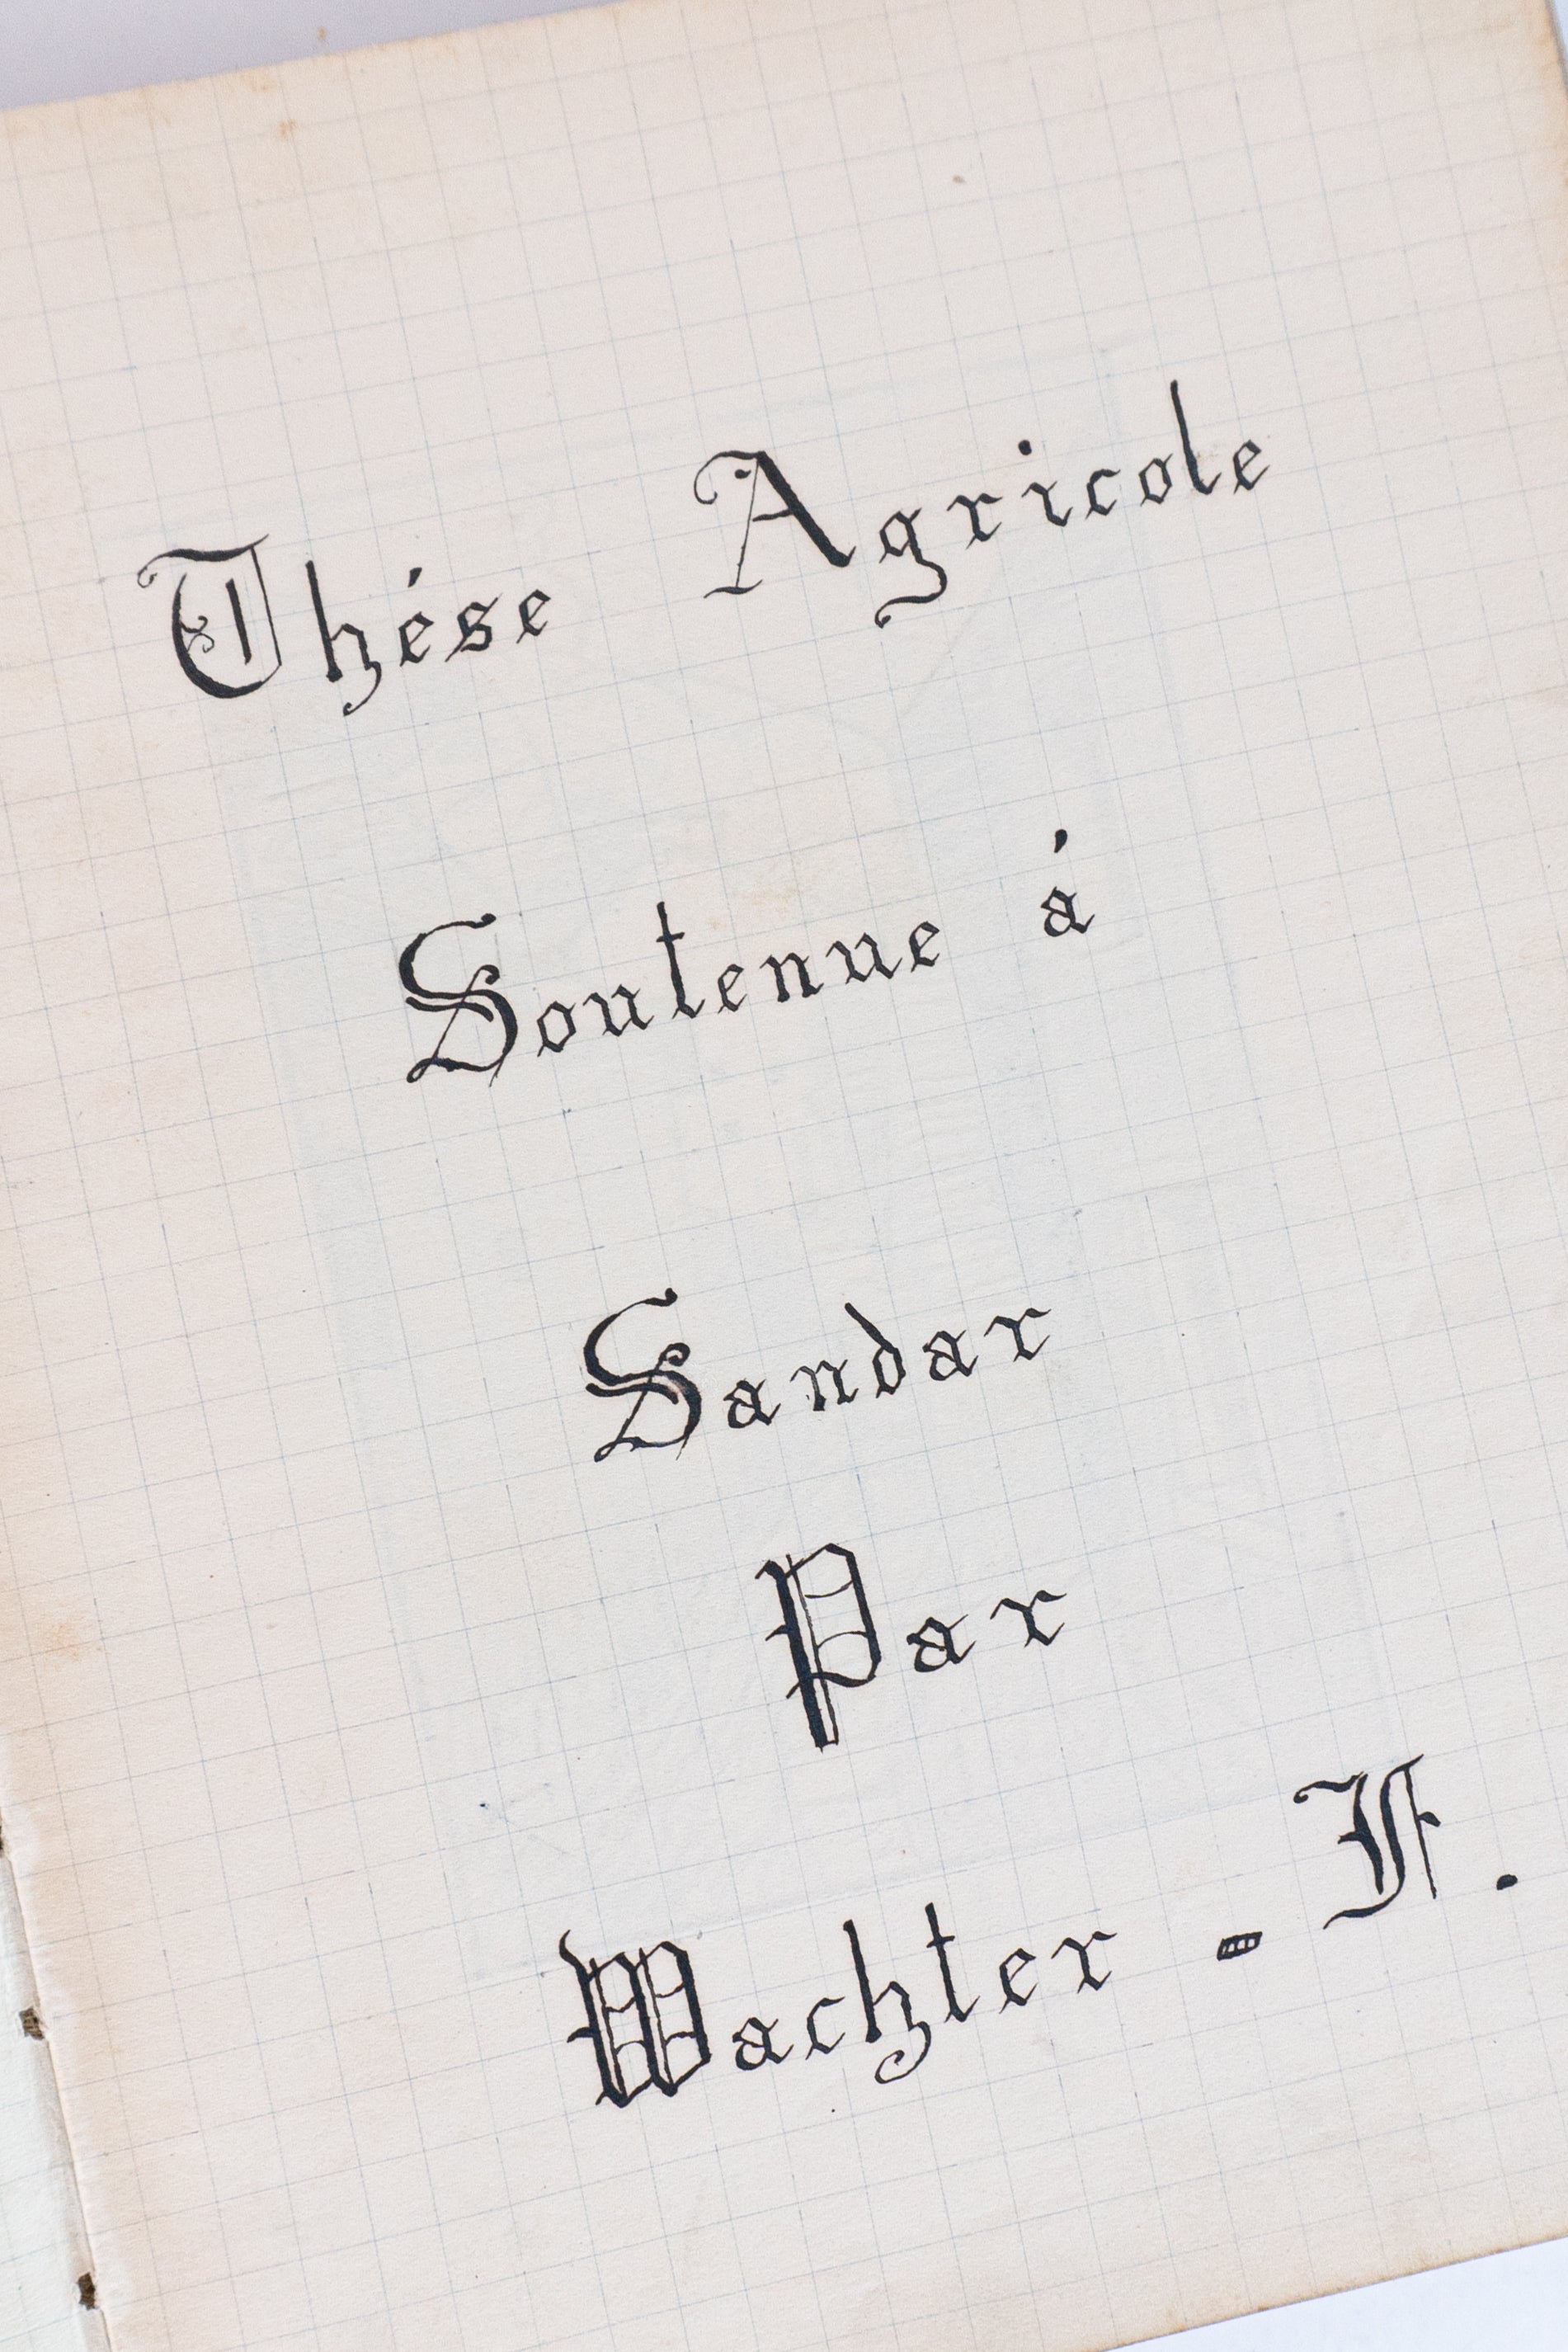 Thése Agricole
Soutenue á
Sandar
Par
Wachter - F.